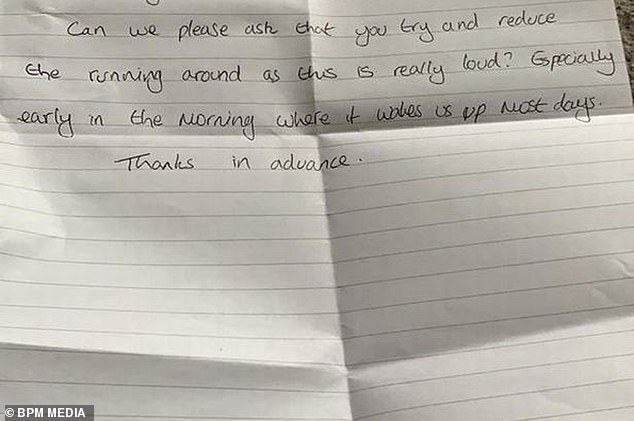 Can we please ask that you try and reduce
the running around as this is really loud? Especially
early in the morning where it wakes us up most days.
Thanks in advance.
© BPM MEDIA